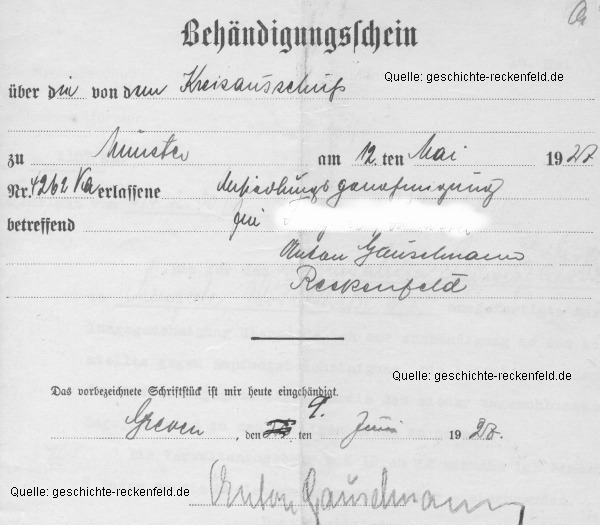 Behändigungsschein
Quelle: geschichte-reckenfeld.de
über die von dem Kreisausschuß
zu Münster am 12. ten Mai 1927
Nr. 4262 Va erlassene Ansiedlungsgenehmigung
betreffend für
Anton Gauselmann
Reckenfeld
Quelle: geschichte-reckenfeld.de
Das vorbezeichnete Schriftstück ist mir heute eingehändigt.
Greven, den 9. ten Juni 1927.
Quelle: geschichte-reckenfeld.de
Anton Gauselmann